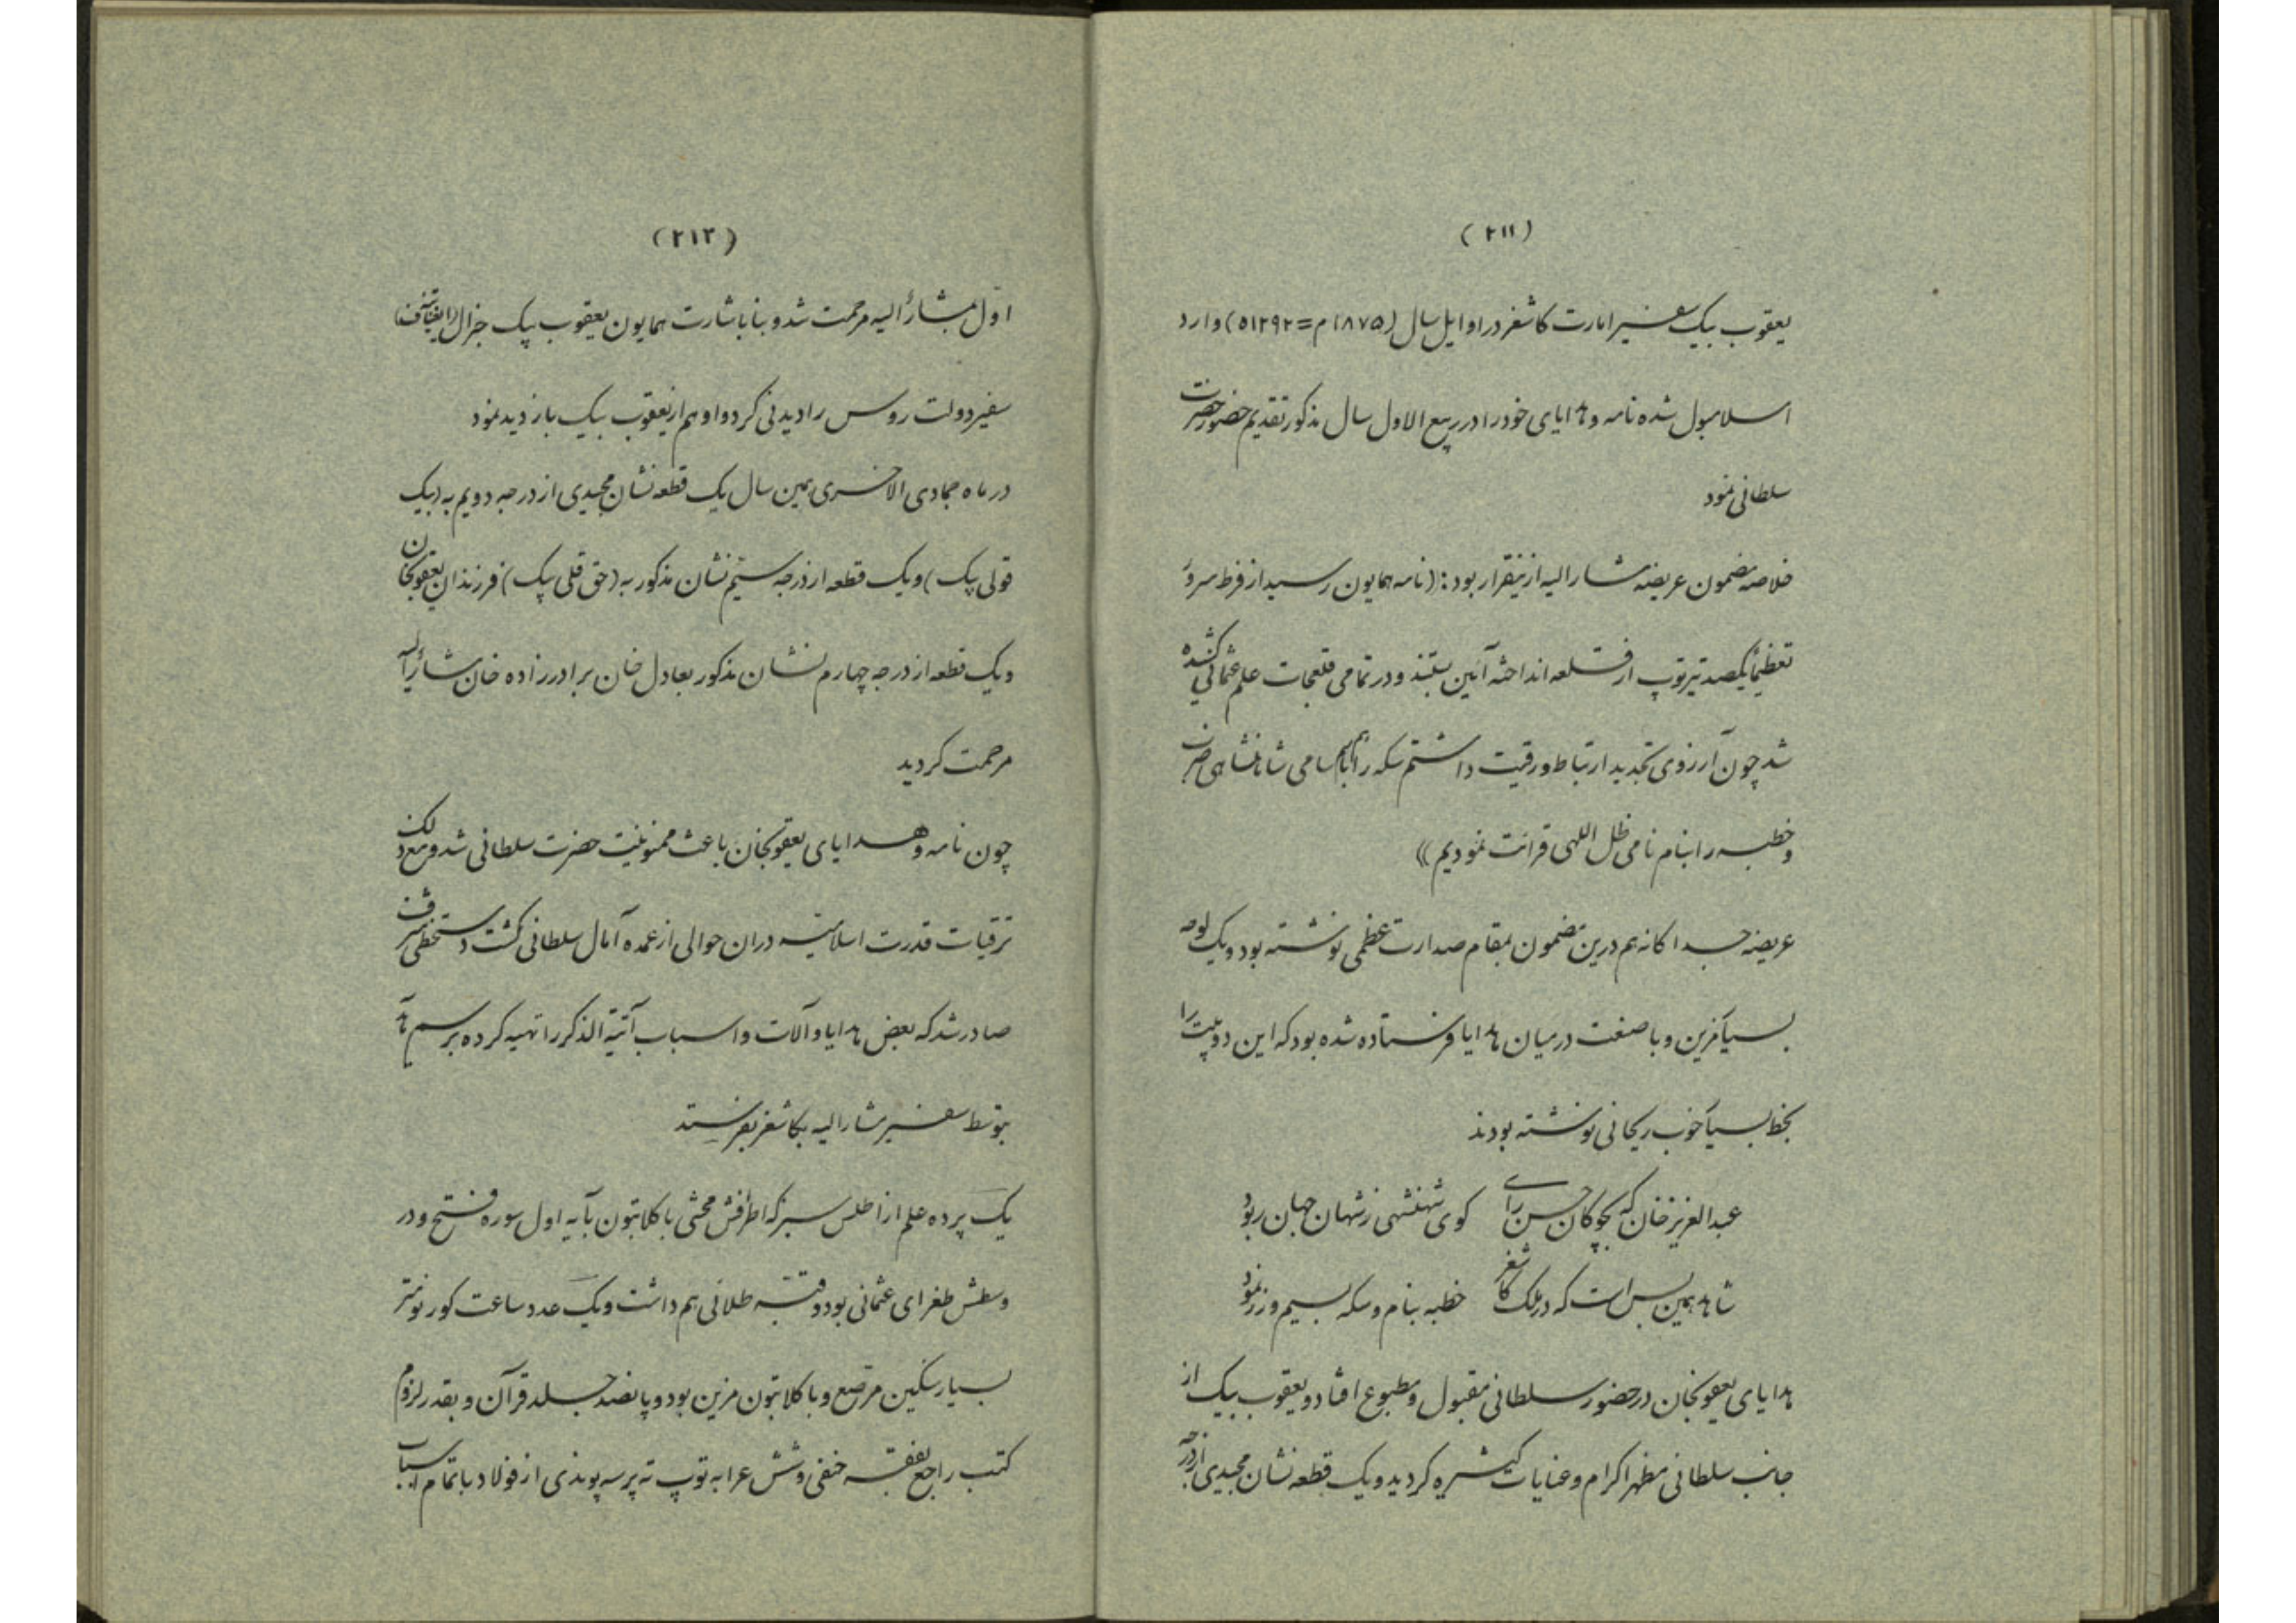 (۲۱۱)
یعقوب بیک سفیر امارت کاشغر در اوایل سال (۱۸۷۵م=۱۲۹۲ه) وارد
اسلامبول شده نامه و هدایای خود را در ربیع الاول سال مذکور تقدیم حضور حضرت
سلطانی نمود
خلاصه مضمون عریضه مشارالیه ازینقرار بود: ((نامه همایون رسید از فرط سرور
تعظیماً یکصد تیر توپ از قلعه انداخته آئین بستند و در تمامی قلعجات علم عثمانی کشیده
شد چون آرزوی تجدید ارتباط و رقیت داشتم سکه را بنام سامی شاهنشاهی ضرب
و خطبه را بنام نامی ظل اللهی قرائت نمودیم))
عریضه جداکانه هم درین مضمون بمقام صدارت عظمی نوشته بود و یک لوحه
بسیار مزین و با صنعت در میان هدایا فرستاده شده بود که این دو بیت را
بخط بسیار خوب ریحانی نوشته بودند
عبدالعزیز خان که بچوکان حسن رای کوی شهنشهی ز شهان جهان ربود
شاهد همین بس است که در ملک کاشغر خطبه بنام و سکه بسیم و زر نمود
هدایای یعقوبخان در حضور سلطانی مقبول و مطبوع افتاد و یعقوب بیک از
جانب سلطانی مظهر اکرام و عنایات کثیره کردید و یک قطعه نشان مجیدی از درجه
(۲۱۲)
اول بمشارٌالیه مرحمت شد و بنا باشارت همایون یعقوب بیک جنرال (ایغناتیف)
سفیر دولت روس را دیدنی کرد و او هم از یعقوب بیک بازدید نمود
در ماه جمادی الاخری همین سال یک قطعه نشان مجیدی از درجه دویم به (بیک
قولی بیک) و یک قطعه از درجه سیم نشان مذکور به (حق قلی بیک) فرزندان یعقوبخان
و یک قطعه از درجه چهارم نشان مذکور بعادل خان برادرزاده خان مشارٌالیه
مرحمت کردید
چون نامه و هدایای یعقوبخان باعث ممنونیت حضرت سلطانی شد و مع ذلک
ترقیات قدرت اسلامیه در ان حوالی از عمده آمال سلطانی کشت دستخطی شرف
صادر شد که بعض هدایا و آلات و اسباب آتیة الذکر را تهیه کرده برسم
بتوسط سفیر مشارالیه بکاشغر بفرستد
یک پرده علم از اطلس سبز که اطرافش محشی با کلابتون بآیه اول سوره فتح و در
وسطش طغرای عثمانی بود و قبّه طلائی هم داشت و یک عدد ساعت کورنومتر
بسیار سنکین مرصع و با کلابتون مزین بود و پانصد جلد قرآن و بقدر لزوم
کتب راجع بفقه حنفی و شش عرابه توپ ته پر سه پوندی از فولاد با تمام اسباب